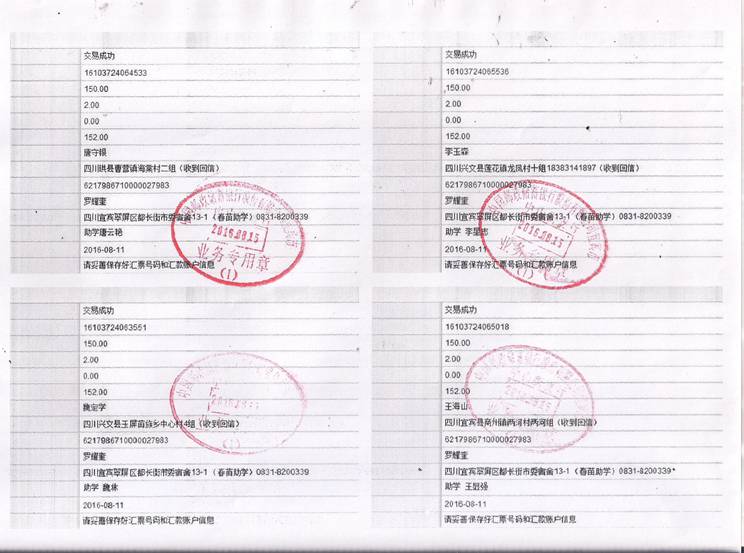 交易成功
16103724064533
150.00
2.00
0.00
152.00
唐守银
四川珙县曹营镇海棠村二组（收到回信）
6217986710000027983
罗耀奎
四川宜宾翠屏区都长街市委宿舍13-1（春苗助学）0831-8200339
助学唐云艳
2016-08-11
请妥善保存好汇票号码和汇款账户信息
2016.08.15
业务专用章
(1)
交易成功
16103724065536
150.00
2.00
0.00
152.00
李玉森
四川兴文县莲花镇龙凤村十组18383141897（收到回信）
6217986710000027983
罗耀奎
四川宜宾翠屏区都长街市委宿舍13-1（春苗助学）0831-8200339
助学 李星志
2016-08-11
请妥善保存好汇票号码和汇款账户信息
2016.08.15
(1)
交易成功
16103724063551
150.00
2.00
0.00
152.00
魏定学
四川兴文县玉屏苗族乡中心村4组（收到回信）
6217986710000027983
罗耀奎
四川宜宾翠屏区都长街市委宿舍13-1（春苗助学）0831-8200339
助学 魏妹
2016-08-11
请妥善保存好汇票号码和汇款账户信息
(1)
交易成功
16103724065018
150.00
2.00
0.00
152.00
王海山
四川宜宾县商州镇两河村两河组（收到回信）
6217986710000027983
罗耀奎
四川宜宾翠屏区都长街市委宿舍13-1（春苗助学）0831-8200339
助学 王廷强
2016-08-11
请妥善保存好汇票号码和汇款账户信息